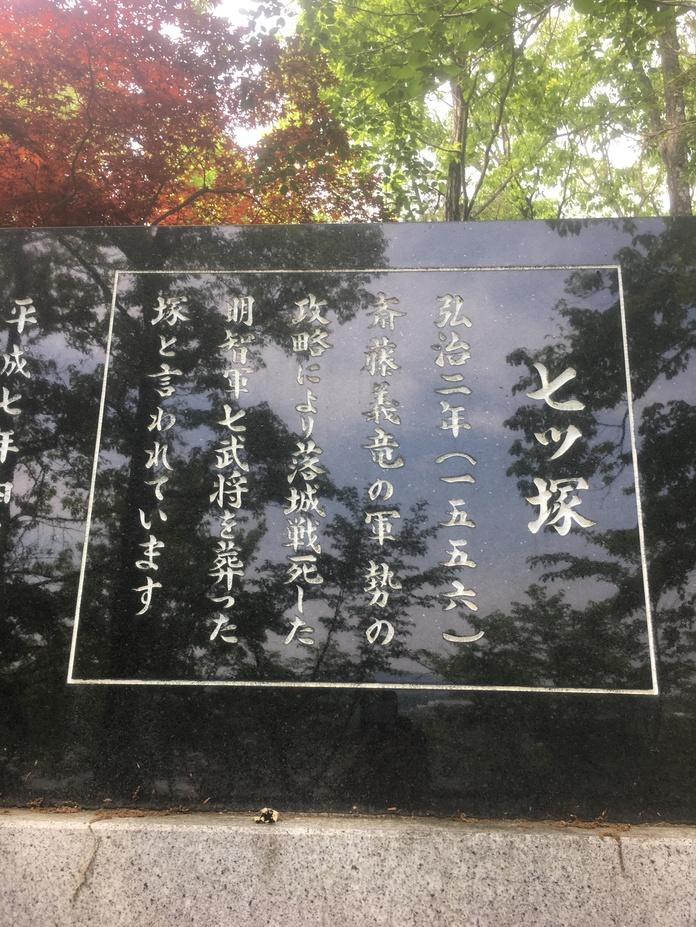 七ツ塚
弘治二年(一五五六)
斎藤義竜の軍勢の
攻略により落城戦死した
明智軍七武将を葬った
塚と言われています
平成七年四